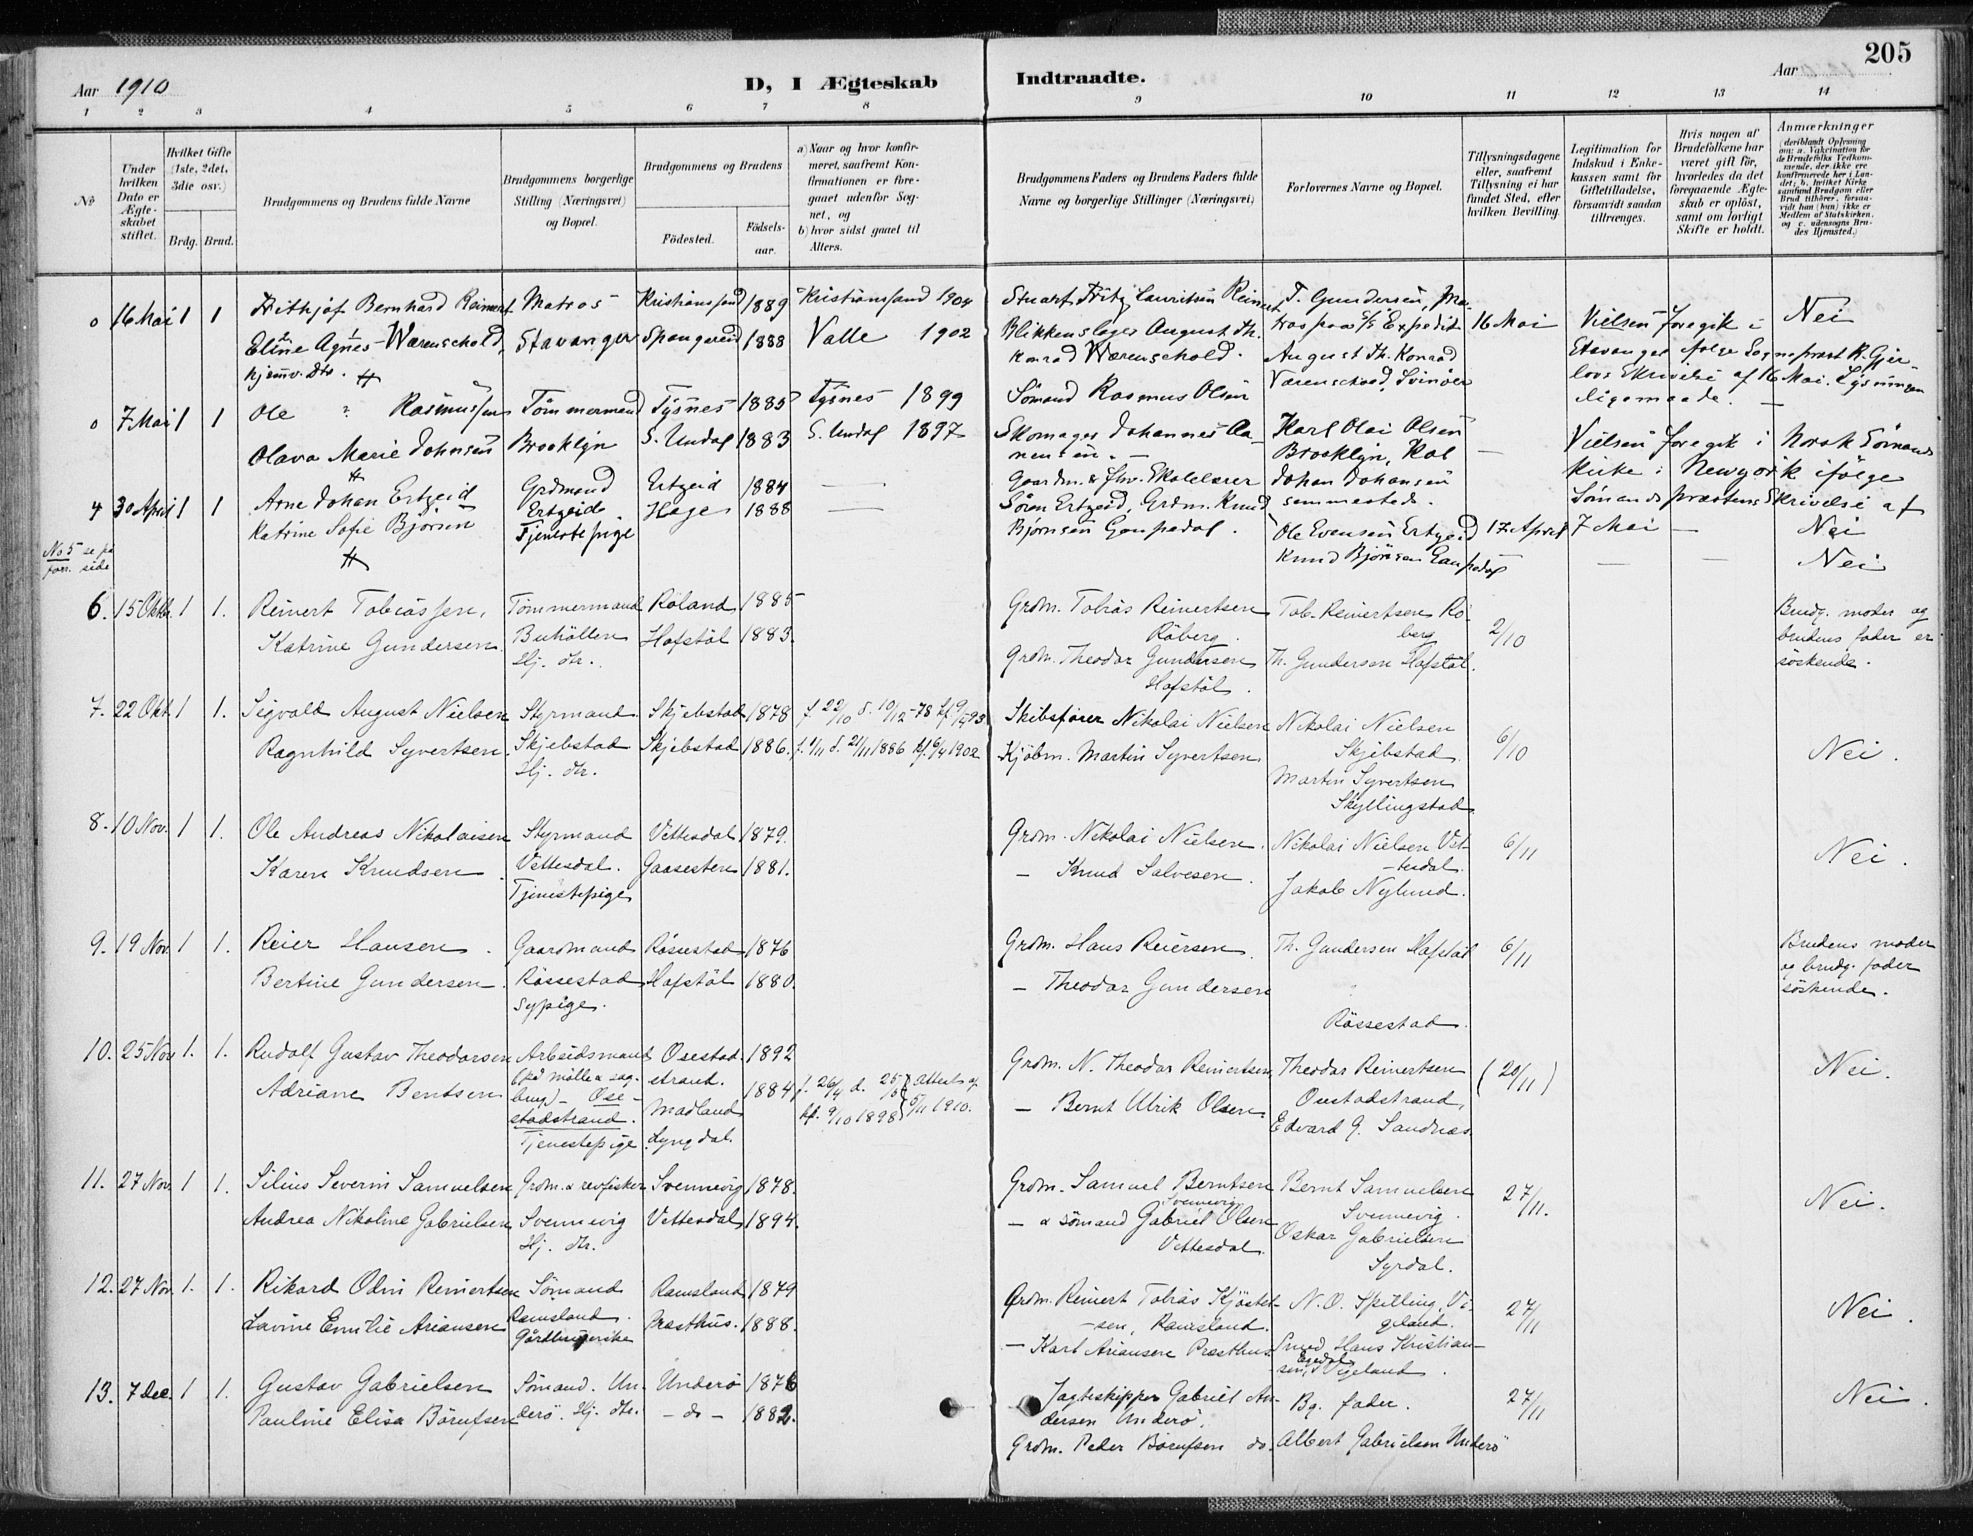 205
Aar 1910
D, I Ægteskab
Indtraadte.
Aar
1 2 3 4 5 6 7 8 9 10 11 12 13 14
No
Under hvilken Dato er Ægteskabet stiftet.
Hvilket Gifte (1ste, 2det, 3die osv.)
Brdg. Brud.
Brudgommens og Brudens fulde Navne
Brudgommens borgerlige Stilling (Næringsvei) og Bopæl.
Brudgommens og Brudens
Födested.
Födsels-aar.
a) Naar og hvor konfirmeret, saafremt Konfirmationen er foregaaet udenfor Sognet, og
b) hvor sidst gaaet til Alters.
Brudgommens Faders og Brudens Faders fulde Navne og borgerlige Stillinger (Næringsvei)
Forlovernes Navne og Bopæl.
Tillysningsdagene eller, saafremt Tillysning ei har fundet Sted, efter hvilken Bevilling.
Legitimation for Indskud i Enkekassen samt for Giftetilladelse, forsaavidt saadan tiltrænges.
Hvis nogen af Brudefolkene har været gift för, hvorledes da det foregaaende Ægteskab er oplöst, samt om lovligt Skifte er holdt.
Anmærkninger
(deriblandt Oplysning om: a. Vakcination for de Brudefolks Vedkommende, der ikke ere konfirmerede her i Landet; b. hvilket Kirkesamfund Brudgom eller Brud tilhörer, forsaavidt han (hun) ikke er Medlem af Statskirken, og c. udensogns Brudes Hjemsted.)
0 16 Mai 1 1 Frithjof Bernhard Reinert Matros Kristianssand 1889 Kristianssand 1904
Eline Agnes Wærenschold, Stavanger Spangereid 1888 Valle 1902
hjemv. Dtr.
Blikkenslager August Th. Konrad Wærenschold.
T. Gundersen, Matros paa S/S Expedit
August Th. Konrad Værenschold, Svinöer
16 Mai
Vielsen foregik i Stavanger ifølge Sognepræst R. Gjerlovs Skrivelse af 16 Mai. Lysningen ligemaade. —
Nei
0 7 Mai 1 1 Ole Rasmussen Tömmermand Tysnes 1885 Tysnes 1899
Olava Marie Johnsen Brooklyn S. Undal 1883 S. Undal 1897
Sömand Rasmus Olsen
Skomager Johannes
Karl Olai Olsen Brooklyn,
Johan Johansen sammesteds.
—
Vielsen foregik i Norsk Sömandskirke i Newyork ifölge Sömandspræstens Skrivelse af 7 Mai —
4 30 April 1 1 Arne Johan Ertzeid Grdmand Ertzeid Ertzeid 1884 —
Katrine Sofie Björsen Tjenestepige Hage 1888 —
Gaardm. & fhv. Skolelærer Sören Ertzeid, Grdm. Knud Björnsen Gaupedal.
Ole Evensen Ertzeid
Knud Björnsen Gaupedal
17 April
Nei
Nei
No 5 se paa forr. side
6. 15 Oktb. 1 1. Reinert Tobiassen, Tömmermand Röland 1885
Katrine Gundersen. Buhöllen Hofstöl 1883.
Hj. dtr.
Grdm. Tobias Reinertsen Röberg.
Grdm. Theodor Gundersen Hofstöl.
Tob. Reinertsen Röberg
Th. Gundersen Hofstöl.
2/10
Brudg. moder og brudens fader er söskende.
7. 22 Okt. 1 1. Sigvald August Nielsen Styrmand Skjebstad 1878 f. 22/10 d. 10/12-78
Ragnhild Syvertsen. Skjebstad Skjebstad 1886. f. 1/11 d. 21/11 1886 kf. 6/4 1902
Hj. dtr.
Skibsförer Nikolai Nielsen
Kjöbm. Martin Syvertsen
Nikolai Nielsen Skjebstad.
Martin Syvertsen Skjellingstad
6/10
Nei.
8. 10 Nov. 1 1. Ole Andreas Nikolaisen Styrmand Vettesdal 1879.
Karen Knudsen. Vettesdal. Gaasesten 1881.
Tjenestepige
Grdm. Nikolai Nielsen.
— Knud Salvesen.
Nikolai Nielsen Vettesdal.
Jakob Nylund.
6/11
Nei.
9. 19 Nov. 1 1. Reier Hansen. Gaardmand Rössestad 1876
Bertine Gundersen. Rössestad Hofstöl 1880.
Sypige.
Grdm. Hans Reiersen.
— Theodor Gundersen
Th. Gundersen Hofstöl
Rössestad.
6/11
Brudens moder og brudg. fader söskende.
10. 25 Nov 1. 1. Rudolf Gustav Theodorsen Arbeidsmand Osestadstrand. 1892
Adriane Bentsen (ved mölle & sagbrug) - Osestadstrand. Madland Lyngdal. 1884 f. 26/4 d. 25/5 kf. 9/10 1898 Attest af 5/11 1910.
Tjenestepige.
Grdm. N. Theodor Reinertsen,
— Bernt Ulrik Olsen.
Theodor Reinertsen Osestadstrand,
Edvard G. Sandnæs.
(20/11)
Nei.
11. 27 Nov. 1 1. Silius Severin Samuelsen Grdm. & revfisker Svennevig 1878.
Andrea Nikoline Gabrielsen Svennevig Vettesdal 1894.
Hj. dtr.
Grdm. Samuel Berntsen Svennevig
— & sömand Gabriel Olsen Vettesdal.
Bernt Samuelsen Svennevig.
Oskar Gabrielsen Syrdal.
27/11.
Nei.
12. 27 Nov. 1. 1. Rikard Odin Reinertsen Sömand Ramsland 1879
Lavine Emilie Ariansen Ramsland. Præsthus. 1888.
Gårdbrugerske
Grdm. Reinert Tobias Ramsland.
— Karl Ariansen Præsthus
N. O. Spilling, Vigeland.
Smed Hans Kristiansen, Egedal Vigeland.
27/11
Nei.
13. 7 Dec. 1 1. Gustav Gabrielsen Sömand. Underö. Underö 1876
Pauline Elisa Börufsen Hj. dtr. — do — 1882.
Jagtskipper Gabriel Andersen Underö.
Grdm. Peder Börufsen do.
Bg. fader.
Albert Gabrielsen Underö
27/11
Nei.